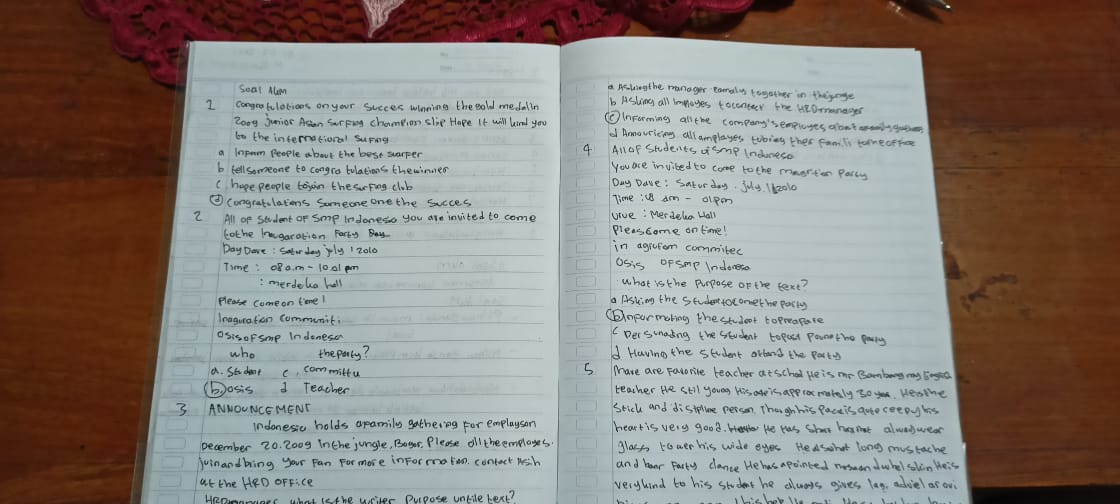 Soal ALM
1 Congratulations on your Succes winning the gold medal in
2009 Junior Asian Surfing champion slip Hope It will lend you
to the international Sufing
a Inform People about the best surfer
b tell someone to congratulations the winner
c hope people to join the surfing club
d Congratulations Someone one the Succes
2 All of Student of Smp Indonesia you are invited to come
to the Inaugaration Party Day
Day Dave : Saturday july 1 2010
Time : 08 a.m - 10.01 pm
: merdeka hall
Please come on time!
Inaguration Communiti
Osis of Smp Indonesia
who the party?
a. Student c. committu
b. osis d Teacher
3 ANNOUNCEMENT
Indonesia holds a family gathering for employson
December 20.2009 In the jungle, Bogor. Please all the employes.
join and bring your Fan For more information. contact
at the HRD OFFICE
what is the writer Purpose text?
a Asking the manager together in the
b Asking all Imployes to contect the HRD manager
c Informing all the company's employes about
d all amployes
4 All of Students of Smp Indonesia
You are invited to come to the Party
Day Dave : Saturday . july. 1 2010
Time : 8 am - 01 pm
: Merdeka Hall
Please come on time!
in commitec
Osis OF Smp Indonesa
what is the Purpose of the text?
a Asking the Student to come the Party
b Informating the student to
c the Student to the Party
d Having the Student attand the Party
5 are Favorite teacher at school He is mr Bambang my English
teacher He stil young His age is approxmately 30 Hes the
Stick and Person. Though his Face is quite creepy his
heart is very good. He Has Short hair always wear
glass to over his wide eyes He also hat long mustache
and He has a pointed skin He is
very kind to his student he always gives